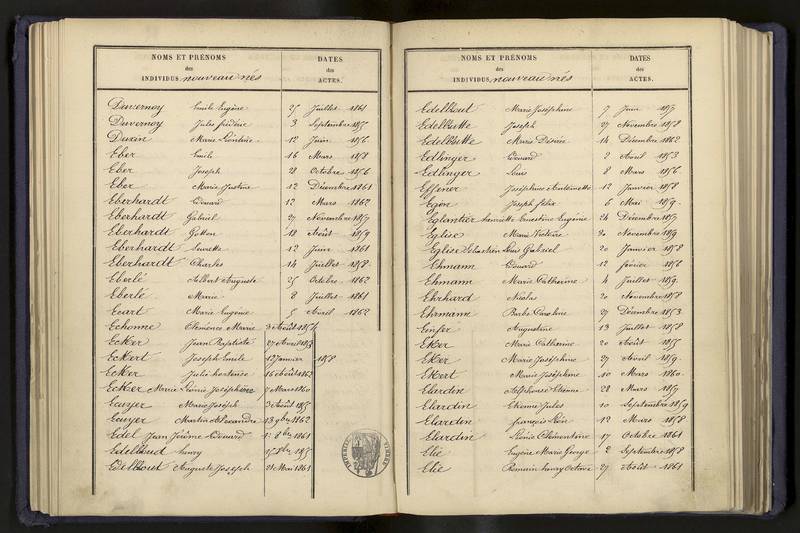 NOMS ET PRÉNOMS
des
INDIVIDUS, nouveau nés
DATES
des
ACTES.
Duvernoy Emile Eugène 25 Juillet 1861
Duvernoy Jules frédéric 3 Septembre 1855
Marie 12 Juin 1856
Eber Emile 16 Mars 1858
Eber Joseph 28 Octobre 1856
Eber Marie Justine 12 Décembre 1861
Eberhardt Edouard 12 Mars 1862
Eberhardt Gabriel 27 Novembre 1857
Eberhardt 18 Août 1859
Eberhardt 12 Juin 1861
Eberhardt Charles 14 Juillet 1858
Eberlé Albert Auguste 25 Octobre 1862
Eberlé Marie 8 Juillet 1861
Ecart Marie Eugénie 5 Avril 1862
Echomne Clémence Marie 3 Août 1854
Ecker Jean Baptiste 27 Avril 1853
Eckert Joseph Emile 12 Janvier 1858
Ecker Julie hortense 16 Août 1862
Eckzer Marie Léonie Joséphine 7 Mars 1860
Ecuyer Marie Joseph 3 Août 1855
Ecuyer Martin Alexandre 13 9bre 1862
Edel Jean Jérôme Edouard 8bre 1861
Edelbout henry 8bre 1855
Edelbout Auguste Joseph 21 Mai 1861
IMPERIAL
NOMS ET PRÉNOMS
des
INDIVIDUS, nouveau nés
DATES
des
ACTES.
Edelbout Marie Joséphine 7 Juin 1857
Edelbutte Joseph 27 Novembre 1858
Edelbutte Marie Désirée 14 Décembre 1862
Edlinger Edouard 2 Avril 1853
Edlinger Louis 8 Mars 1856
Effener Joséphine Antoinette 12 Janvier 1858
Egon Joseph félix 6 Mai 1859
Eglantier henriette Ernestine Eugénie 24 Décembre 1857
Eglise Marie Victoire 30 Novembre 1859
Eglise Sébastien Louis Gabriel 20 Janvier 1858
Ehmann Edouard 12 février 1856
Ehmann Marie Catherine 4 Juillet 1859
Ehrhard Nicolas 20 Novembre 1858
Ehrmann Barbe Caroline 27 Décembre 1853
Einfer Augustine 13 Juillet 1858
Eker Marie Catherine 20 Août 1855
Eker Marie Joséphine 27 Avril 1859
Ekert Marie Joséphine 10 Mars 1860
Elardin Alphonse Etienne 28 Mars 1857
Elardin Etienne Jules 10 Septembre 1859
Elardin françois Léon 12 Mars 1858
Elardin Léonie Clémentine 17 Octobre 1861
Elie Eugène Marie George 2 Septembre 1858
Elie Romain henry Octave 27 Août 1861